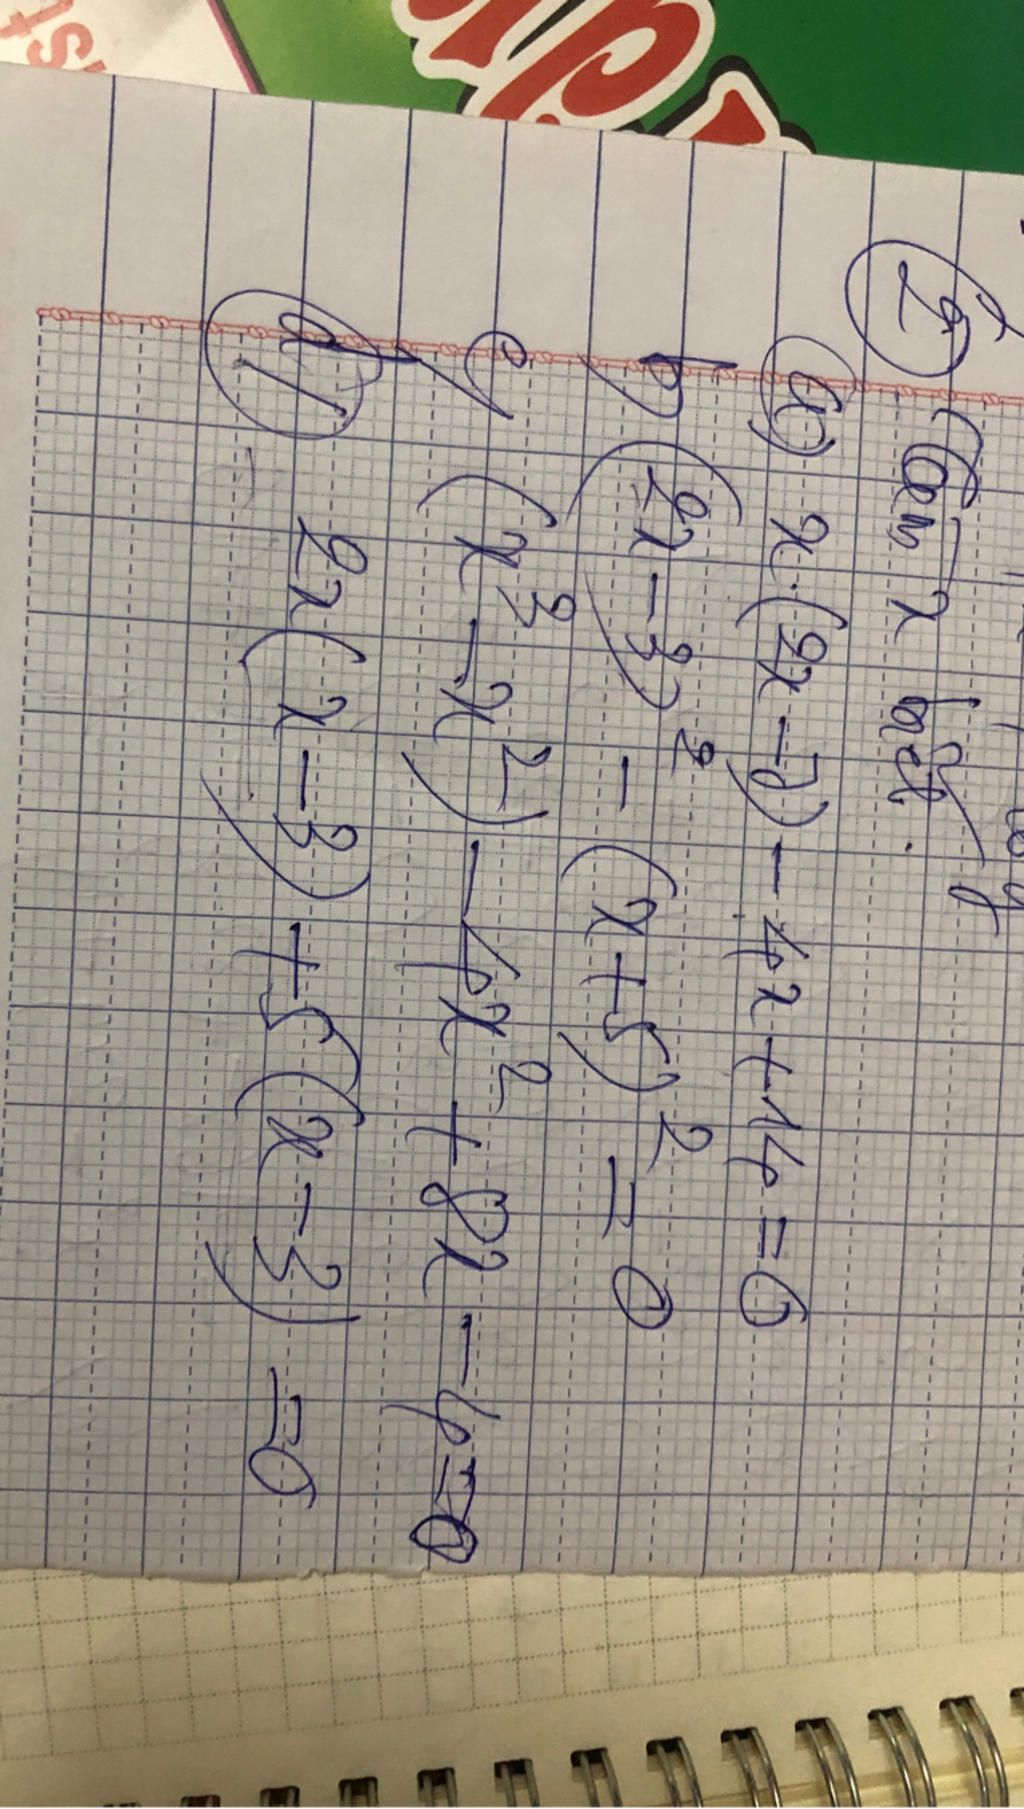 2) Tìm x biết.
a) x.(2x-7)-4x+14=0
b) (2x-3)² - (x+5)² = 0
c) (x³-x²)-4x²+8x-4=0
d) 2x(x-3)+5(x-3)=0